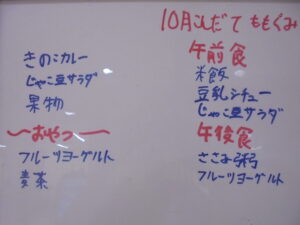 10月こんだて ももぐみ
きのこカレー
じゃこ豆サラダ
果物
〜おやつ〜
フルーツヨーグルト
麦茶
午前食
米飯
豆乳シチュー
じゃこ豆サラダ
午後食
ささみ粥
フルーツヨーグルト